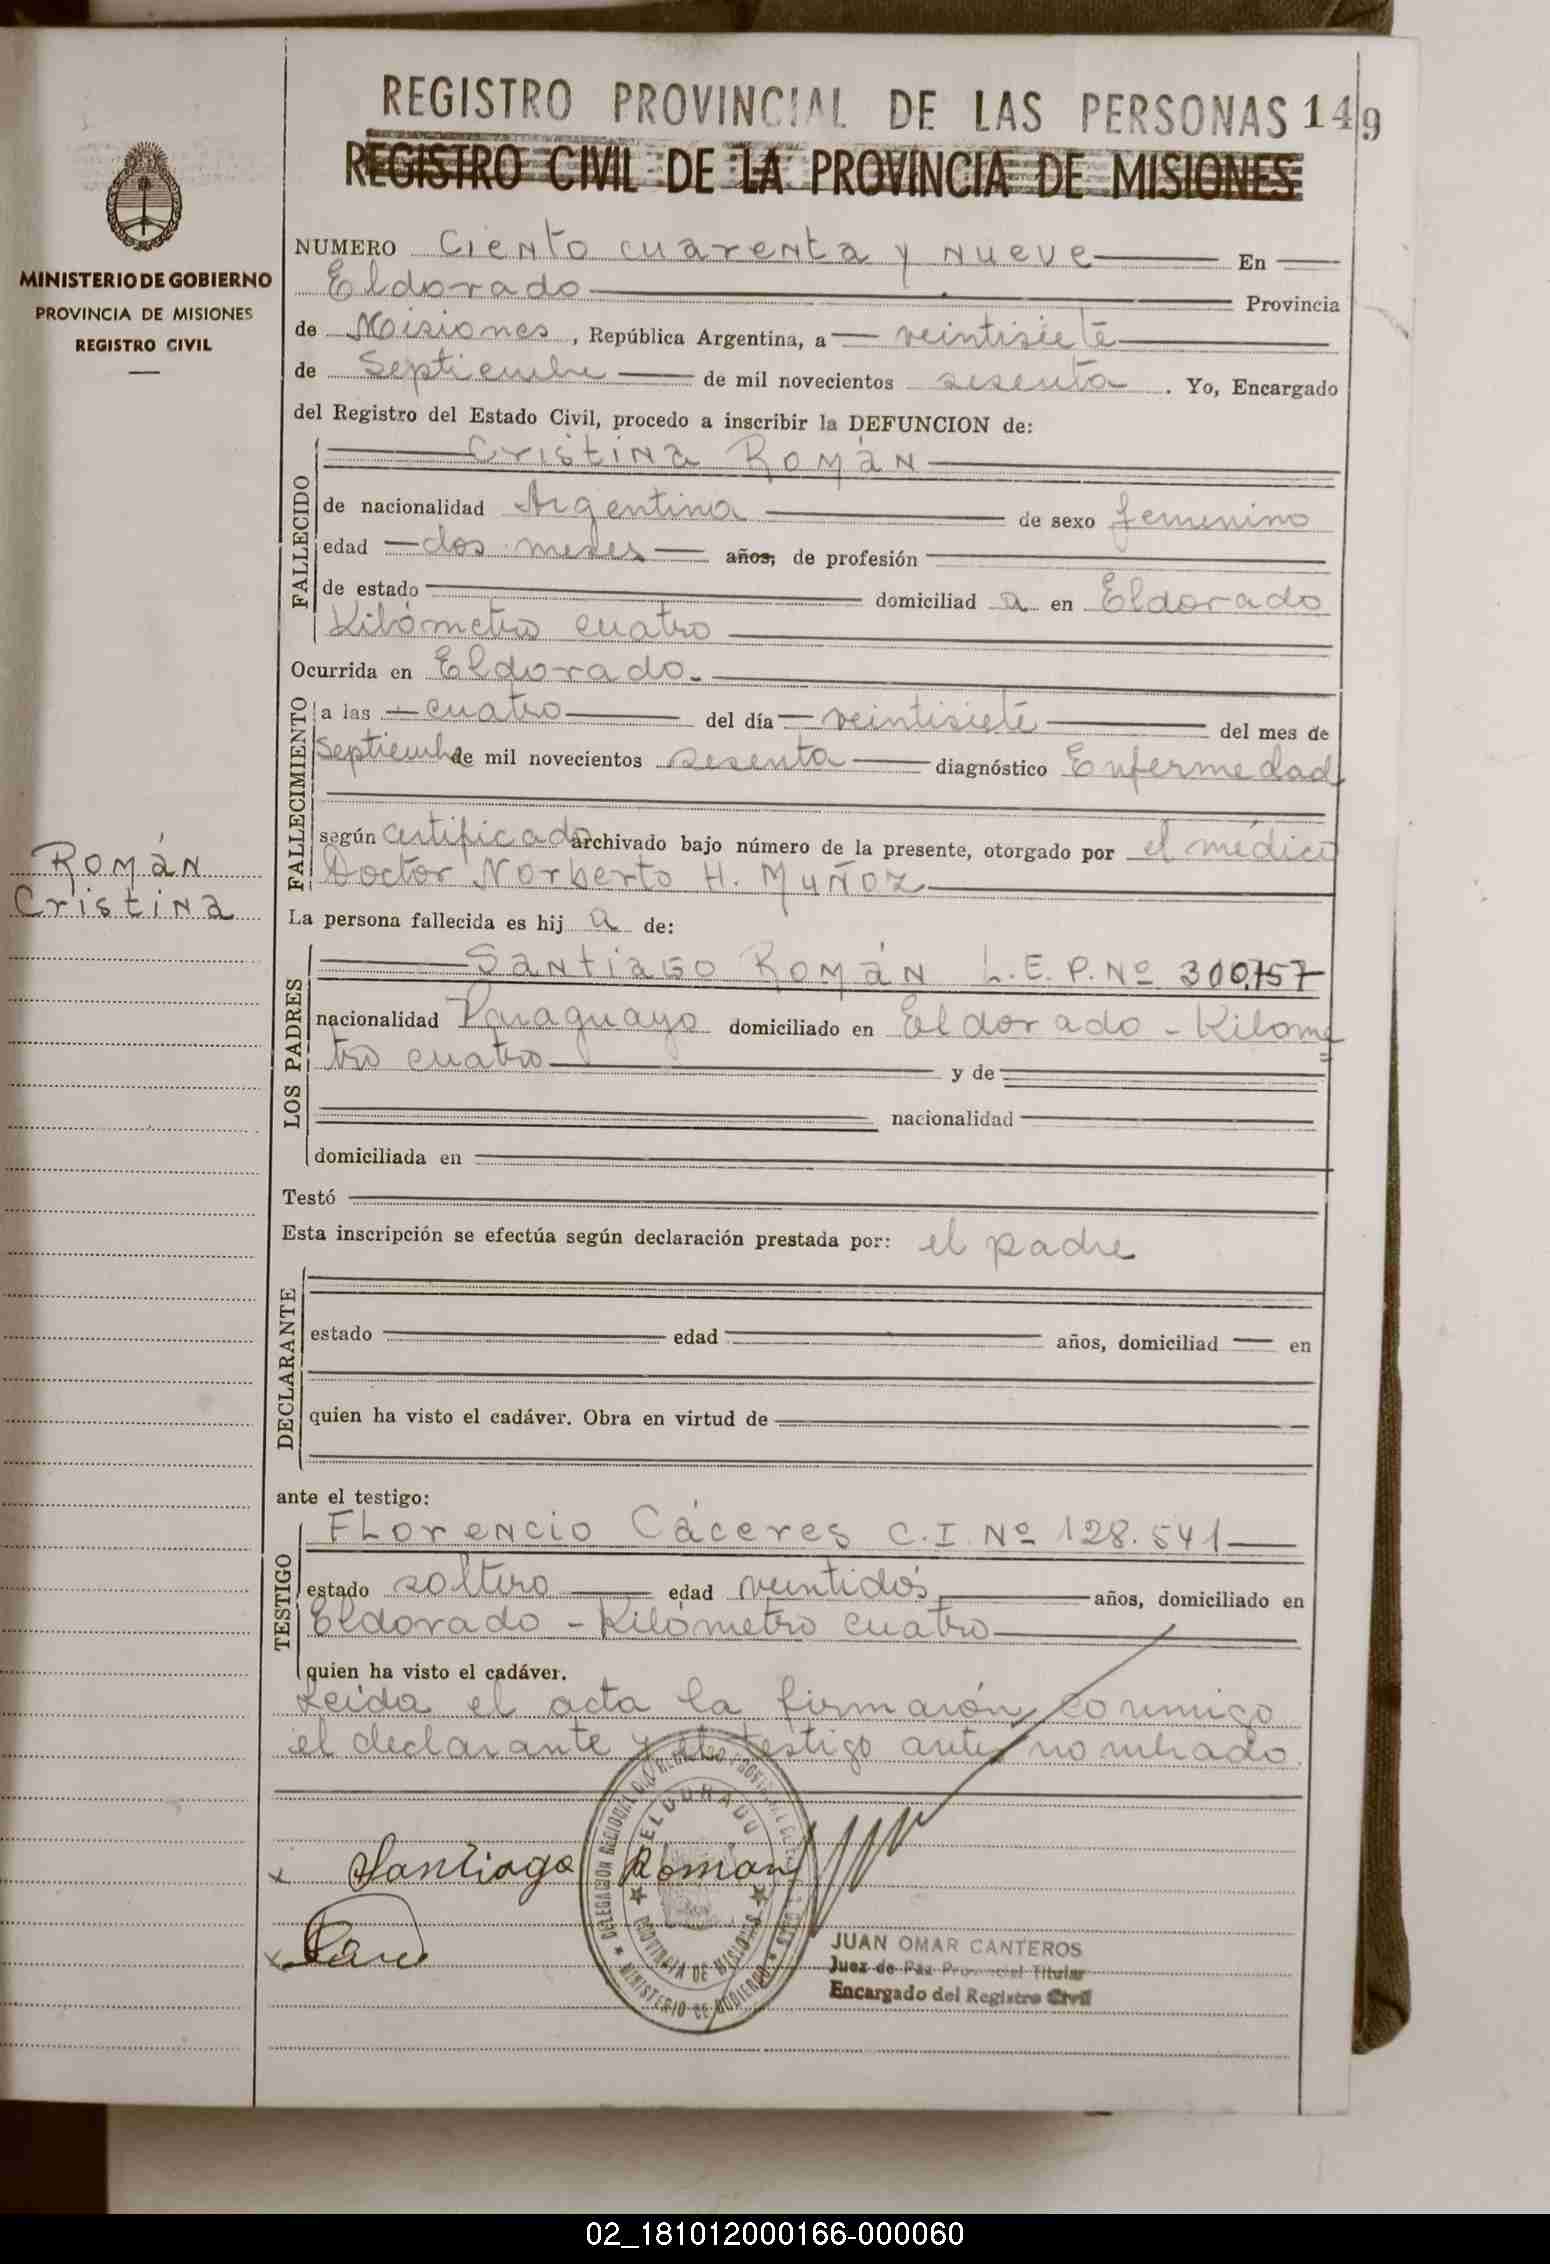 REGISTRO PROVINCIAL DE LAS PERSONAS 149
REGISTRO CIVIL DE LA PROVINCIA DE MISIONES
MINISTERIO DE GOBIERNO
PROVINCIA DE MISIONES
REGISTRO CIVIL
NUMERO Ciento cuarenta y nueve En
Eldorado Provincia
de Misiones, República Argentina, a veintisiete
de Septiembre de mil novecientos sesenta. Yo, Encargado
del Registro del Estado Civil, procedo a inscribir la DEFUNCION de:
Cristina Román
FALLECIDO
de nacionalidad Argentina de sexo femenino
edad dos meses años, de profesión
de estado domiciliad a en Eldorado
Kilómetro cuatro
Ocurrida en Eldorado.
FALLECIMIENTO
a las cuatro del día veintisiete del mes de
Septiembre de mil novecientos sesenta diagnóstico Enfermedad
según certificado archivado bajo número de la presente, otorgado por el médico
Doctor Norberto H. Muñoz
Román
Cristina
La persona fallecida es hij a de:
LOS PADRES
Santiago Román L.E.P.Nº 300.757
nacionalidad Paraguayo domiciliado en Eldorado - Kilome
tro cuatro y de
nacionalidad
domiciliada en
Testó
Esta inscripción se efectúa según declaración prestada por: el padre
DECLARANTE
estado edad años, domiciliad en
quien ha visto el cadáver. Obra en virtud de
ante el testigo:
TESTIGO
Florencio Cáceres C.I. Nº 128.541
estado soltero edad veintidós años, domiciliado en
Eldorado - Kilómetro cuatro
quien ha visto el cadáver.
Leída el acta la firmarón conmigo
el declarante y el testigo antes nombrado.
Santiago Roman
DELEGACION REGIONAL DEL REGISTRO PROVINCIAL DE LAS PERSONAS
ELDORADO
PROVINCIA DE MISIONES
MINISTERIO DE GOBIERNO
JUAN OMAR CANTEROS
Juez de Paz Provincial Titular
Encargado del Registro Civil
02_181012000166-000060